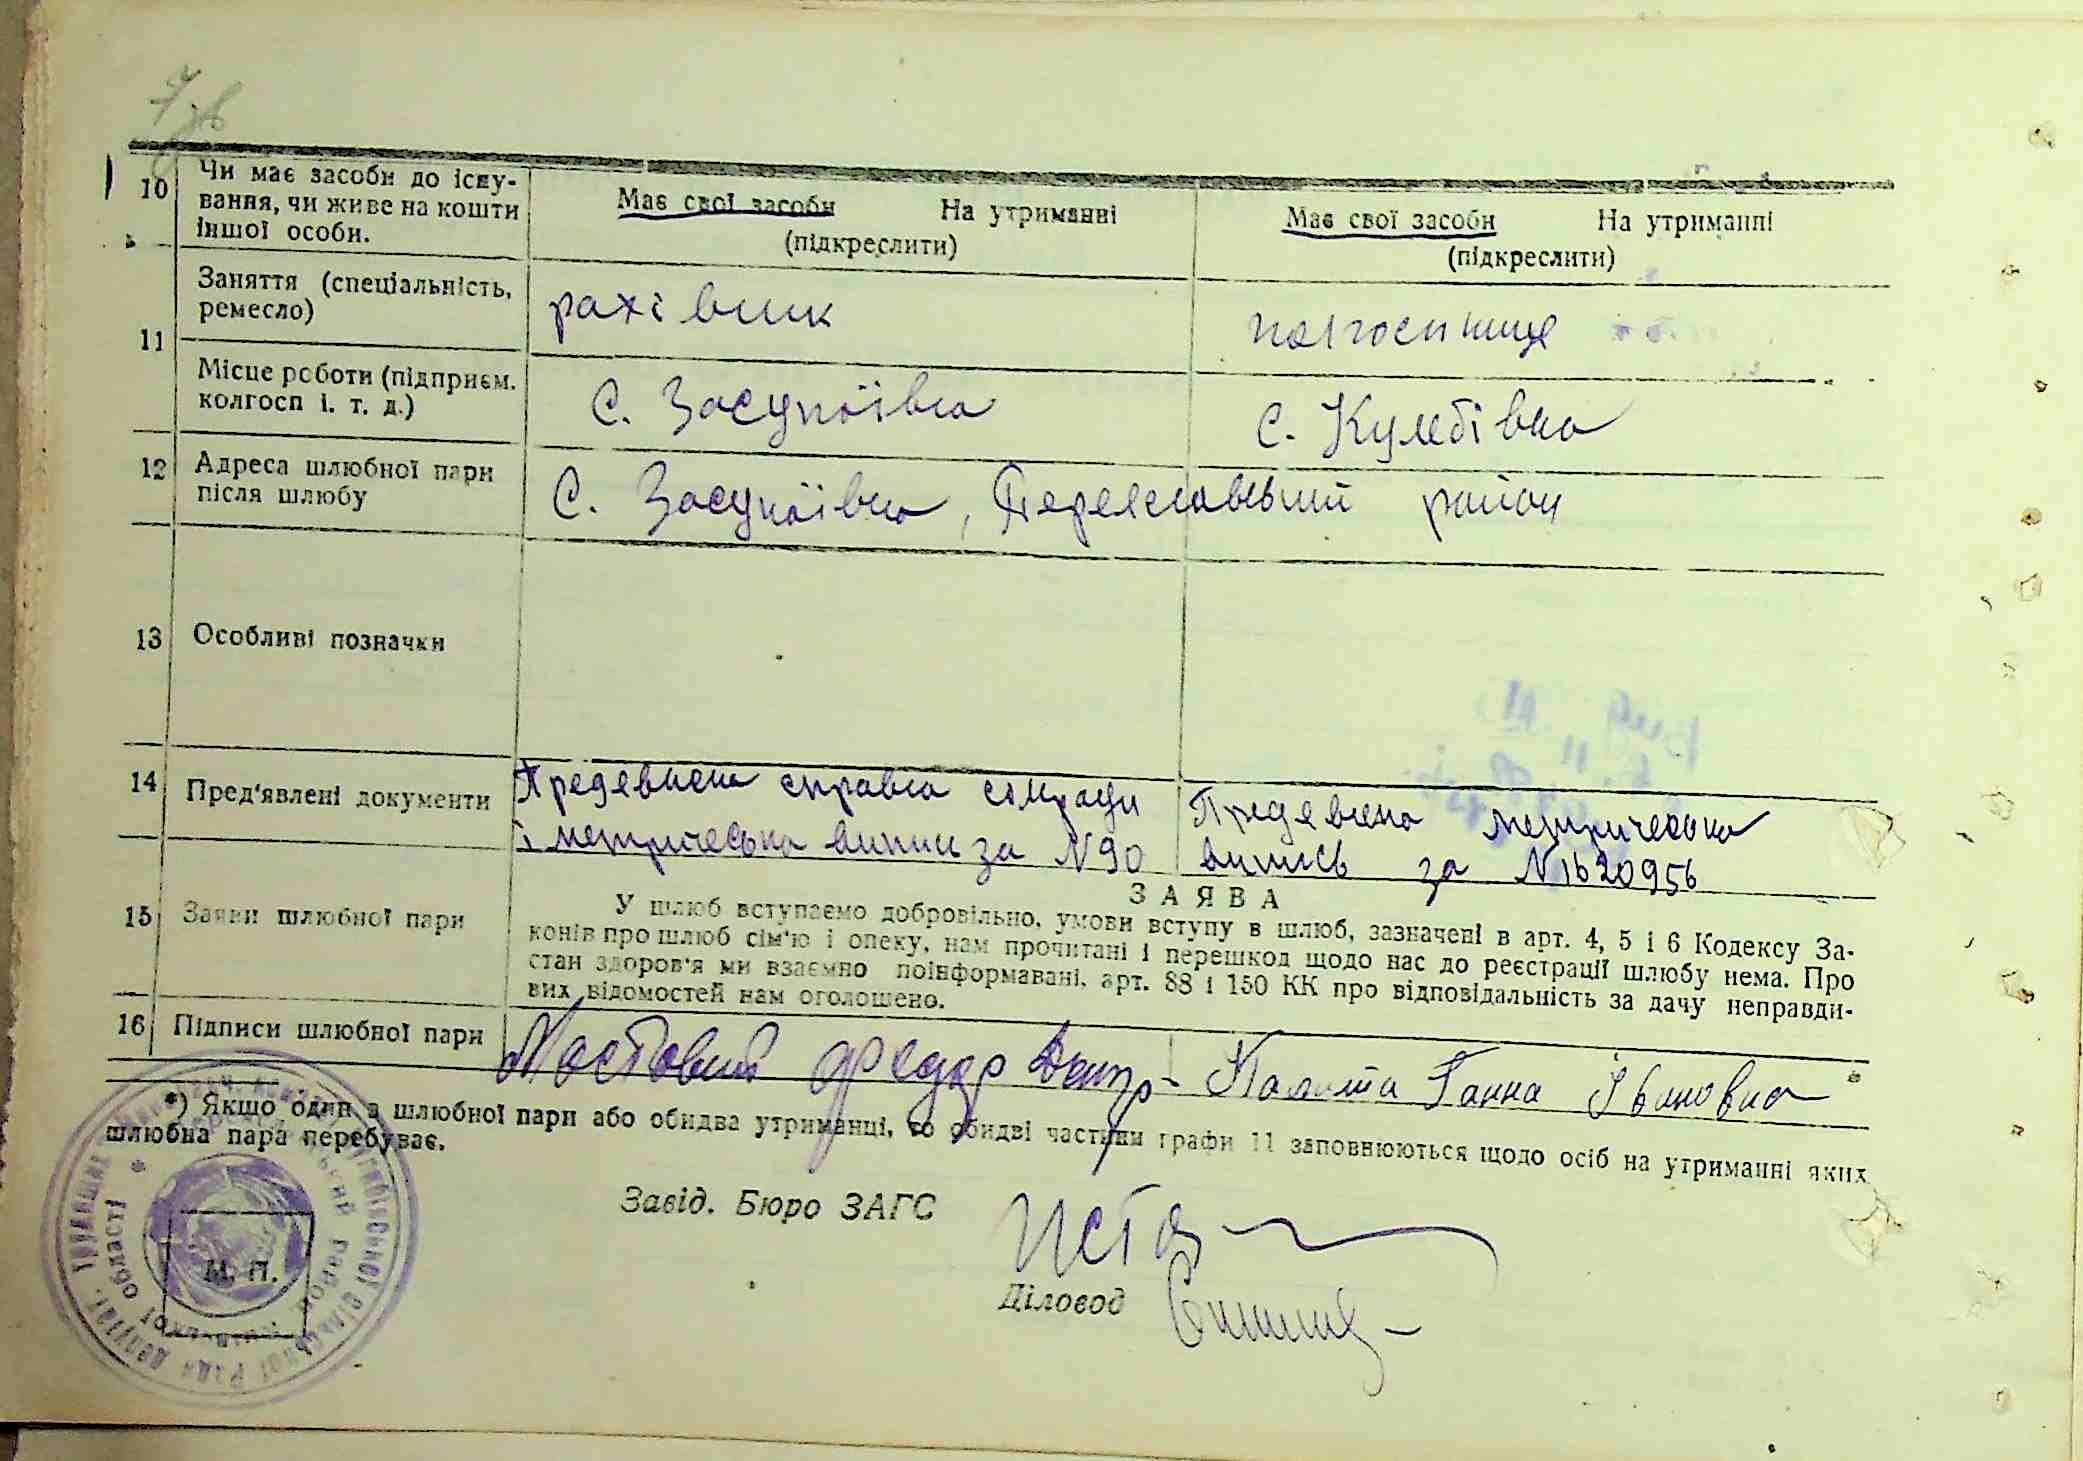 10 Чи має засоби до існу-
вання, чи живе на кошти
іншої особи.
Має свої засоби На утриманні
(підкреслити)
Має свої засоби На утриманні
(підкреслити)
11 Заняття (спеціальність,
ремесло)
рахівник
колгоспниця
Місце роботи (підприєм.
колгосп і. т. д.)
с. Засупоївка
с. Кулебівка
12 Адреса шлюбної пари
після шлюбу
с. Засупоївка, Переяславський район
13 Особливі позначки
14 Пред'явлені документи
Предевлена справка сільради
і метрическа випись за N 90
Предевлена метрическа
випись за N 1620956
15 Заяви шлюбної пари
ЗАЯВА
У шлюб вступаємо добровільно, умови вступу в шлюб, зазначені в арт. 4, 5 і 6 Кодексу За-
конів про шлюб сім'ю і опеку, нам прочитані і перешкод щодо нас до реєстрації шлюбу нема. Про
стан здоров'я ми взаємно поінформавані, арт. 88 і 150 КК про відповідальність за дачу неправди-
вих відомостей нам оголошено.
16 Підписи шлюбної пари
Мостовий Федор Дмитр-
Палата Ганна Івановна
*) Якщо один з шлюбної пари або обидва утриманці, то обидві частини графи 11 заповнюються щодо осіб на утриманні яких
шлюбна пара перебуває.
Завід. Бюро ЗАГС
М. П.
Діловод